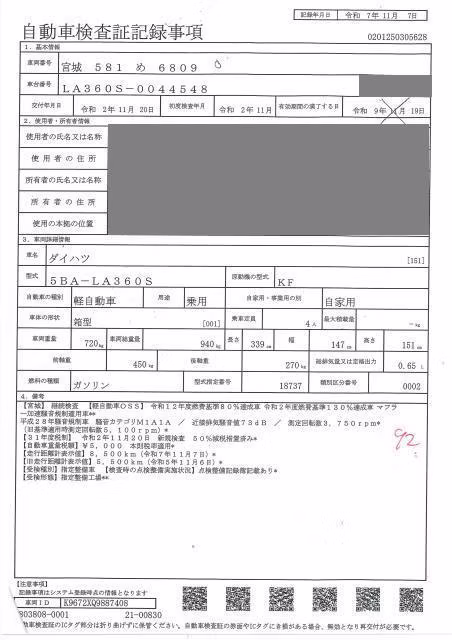 記録年月日 令和 7年11月 7日
自動車検査証記録事項
0201250305628
1. 基本情報
車両番号 宮城 581 め 6809
車台番号 LA360S-0044548
交付年月日 令和 2年11月 20日 初度検査年月 令和 2年11月 有効期間の満了する日 令和 9年11月 19日
2. 使用者・所有者情報
使用者の氏名又は名称
使用者の住所
所有者の氏名又は名称
所有者の住所
使用の本拠の位置
3. 車両詳細情報
車名 ダイハツ [151]
型式 5BA-LA360S 原動機の型式 KF
自動車の種別 軽自動車 用途 乗用 自家用・事業用の別 自家用
車体の形状 箱型 [001] 乗車定員 4人 最大積載量 -kg
車両重量 720kg 車両総重量 940kg 長さ 339cm 幅 147cm 高さ 151cm
前軸重 450kg 後軸重 270kg 総排気量又は定格出力 0.65 L
燃料の種類 ガソリン 型式指定番号 18737 類別区分番号 0002
4. 備考
【宮城】 継続検査 【軽自動車OSS】 令和12年度燃費基準80%達成車 令和2年度燃費基準130%達成車 マフラ
ー加速騒音規制適用車**
平成28年騒音規制車 騒音カテゴリM1A1A / 近接排気騒音値73dB / 測定回転数3,750rpm*
(旧基準適用時測定回転数5,100rpm)*
【31年度税制】 令和2年11月20日 新規検査 50%減税措置済み*
【自動車重量税額】 ¥5,000 本則税率適用*
【走行距離計表示値】 8,500km (令和7年11月7日)*
【旧走行距離計表示値】 5,500km (令和5年11月6日)*
【受検種別】指定整備車 【検査時の点検整備実施状況】点検整備記録簿記載あり*
【受検形態】指定整備工場**
92
【注意事項】
記録事項はシステム登録時点の情報となります
車両ID K9672XQ9887408
803808-0001 21-00830
動車検査証のICタグ部分は折り曲げずに保管ください。自動車検査証の券面やICタグにき損がある場合、無効となり再交付が必要です。